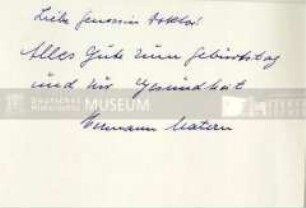 Liebe Genossin Doktor!
Alles Gute zum Geburtstag
und vor Gesundheit
Hermann Matern
Deutsches
Historisches MUSEUM